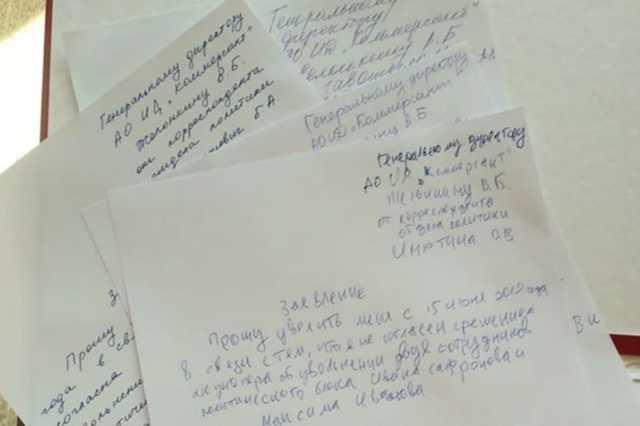 Генеральному директору
АО ИД "Коммерсант"
Желонкину В.Б.
от корреспондента
отдела политики
Б.А.
Прошу
года в св
согласна
Генеральному
директору
АО ИД "Коммерсант"
Желонкину В.Б.
Генеральному директору
АО ИД "Коммерсант"
В.Б.
Генеральному директору
АО ИД "Коммерсант"
Желонкину В.Б.
от корреспондента
отдела политики
Заявление
Прошу уволить меня с 15 июня 2019 года
в связи с тем, что я не согласен с решением
акционера об увольнении двух сотрудников
политического блока Ивана Сафронова и
Максима Иванова